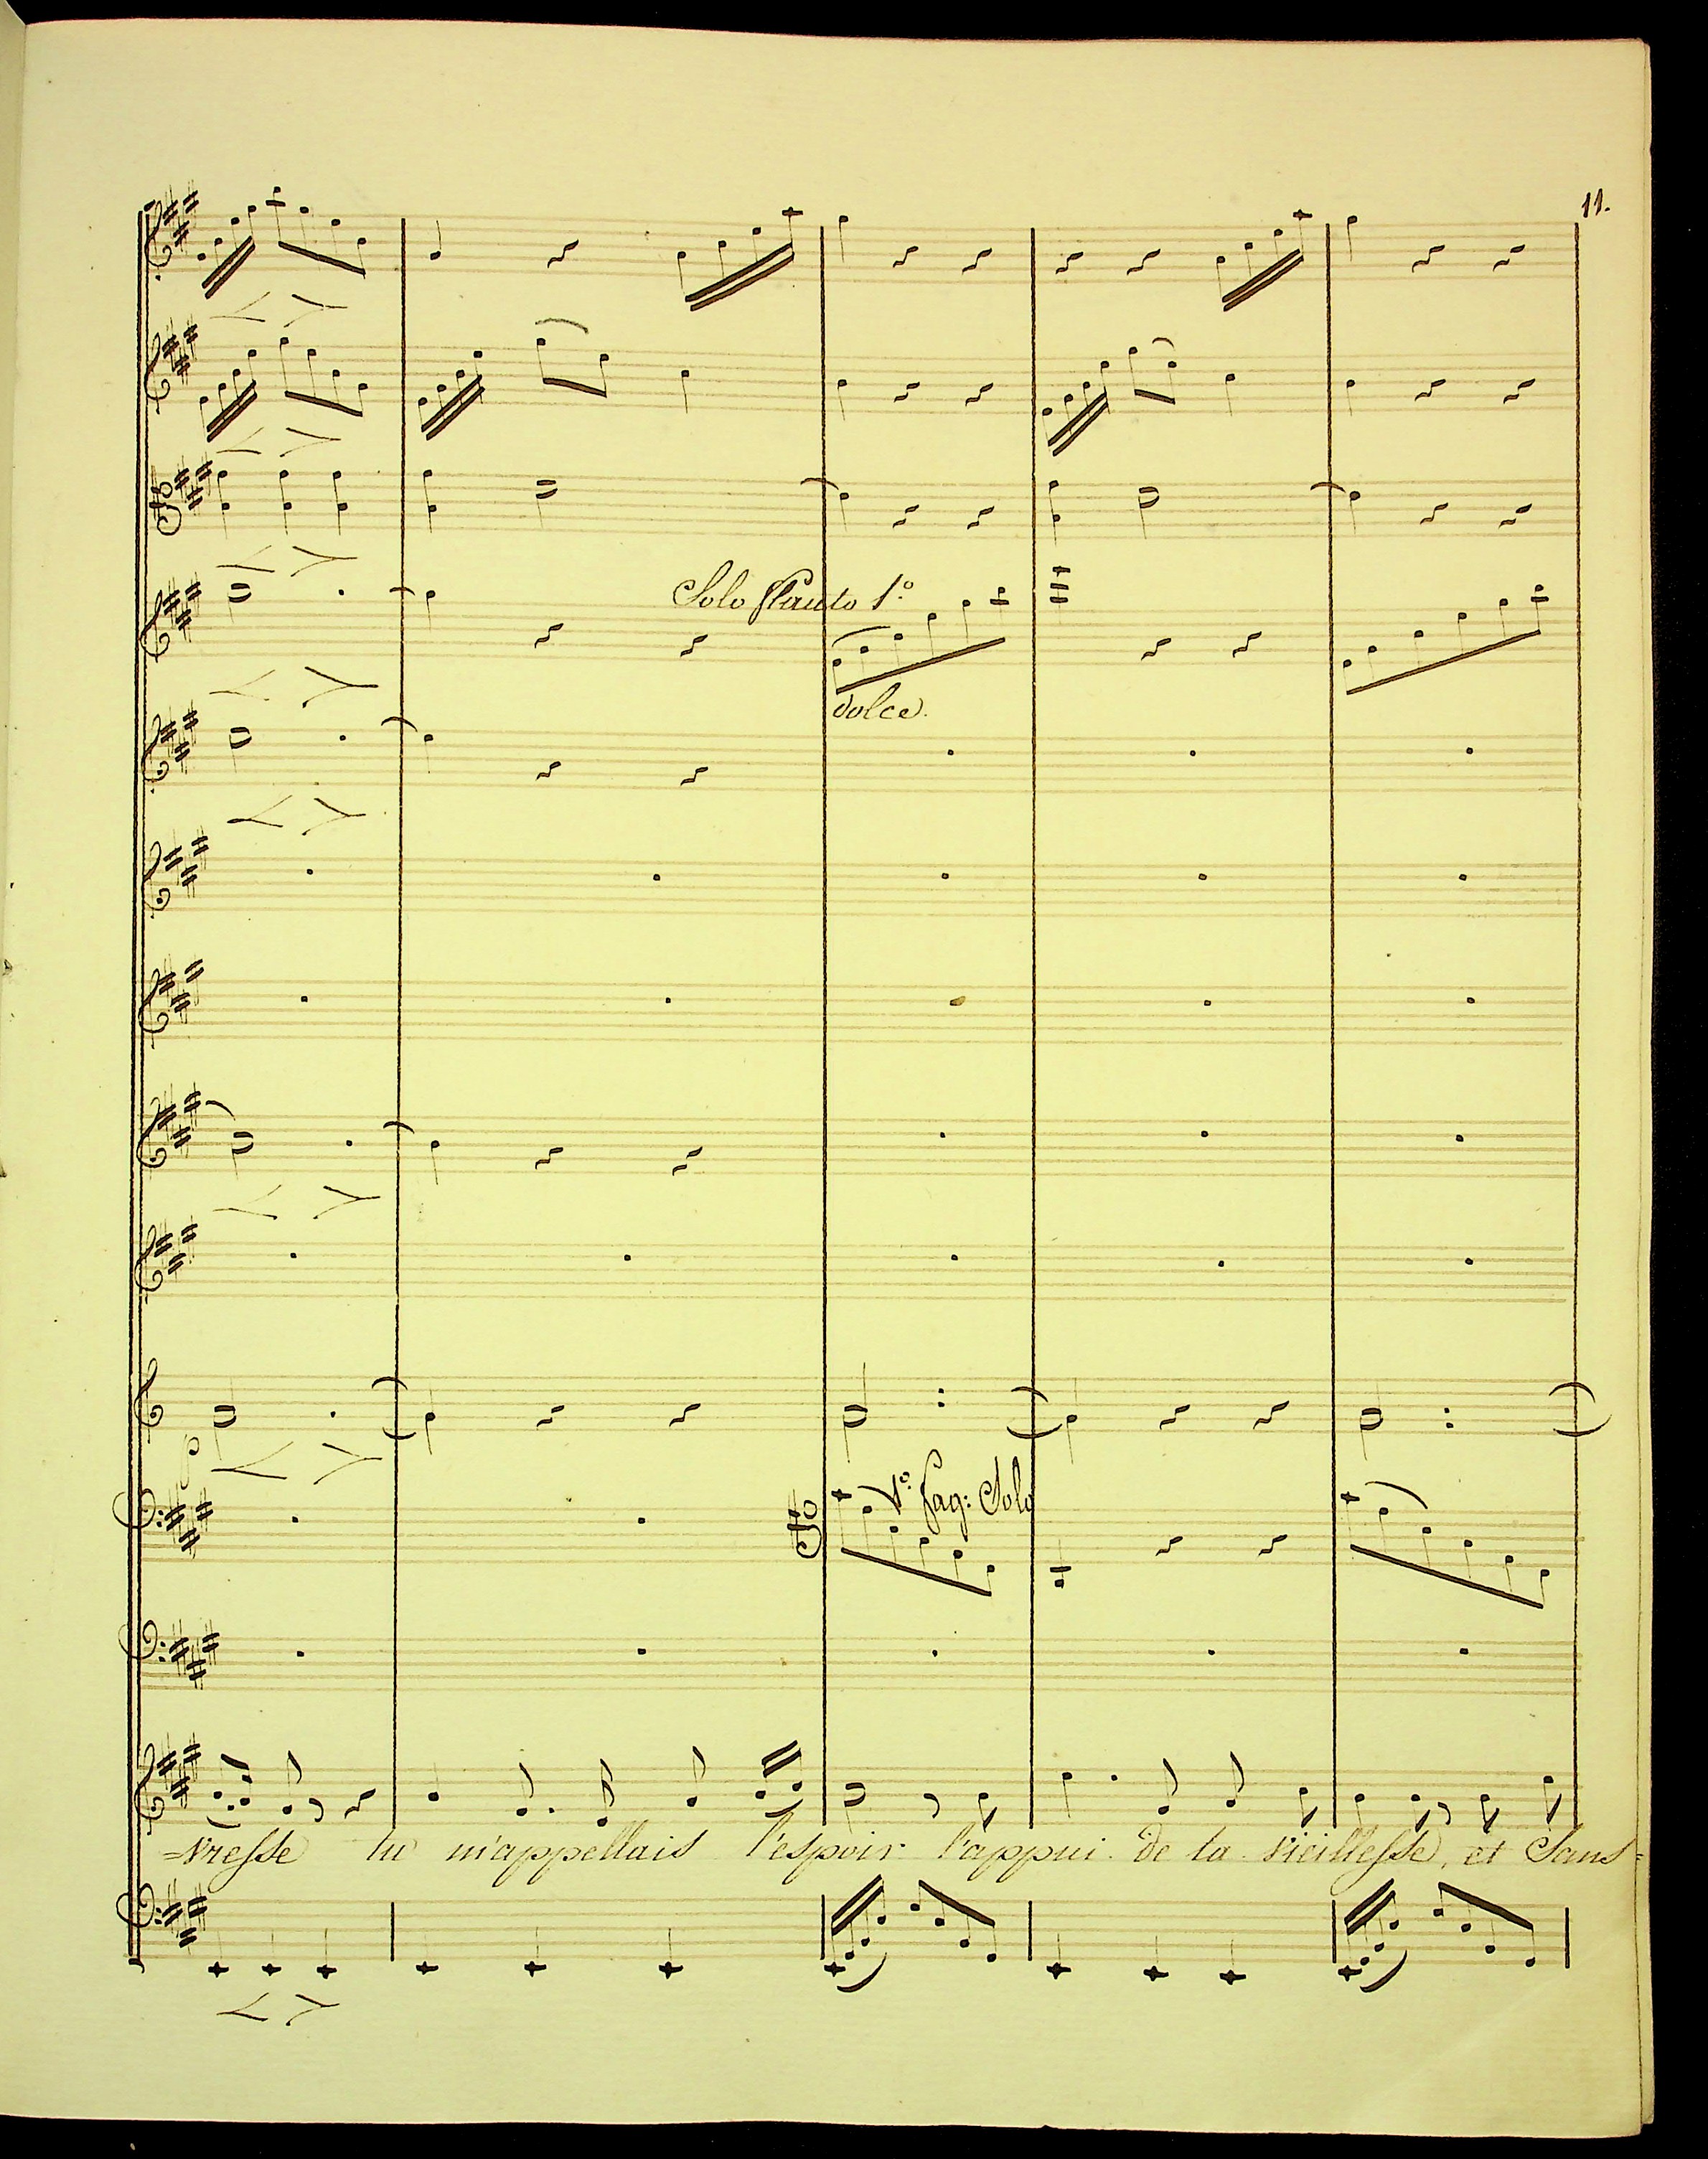 11.
Solo flauto 1º
dolce.
1º fag: Solo
=vresse tu m'appellais l'espoir l'appui de la vieillesse, et Sans=